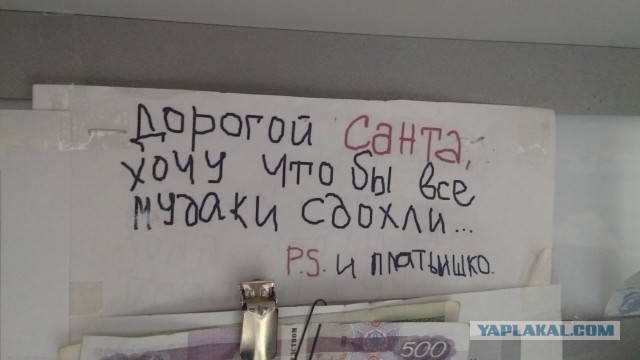 дорогой Санта,
хочу что бы все
мудаки сдохли...
P.S. и платьишко.
500
YAPLAKAL.COM